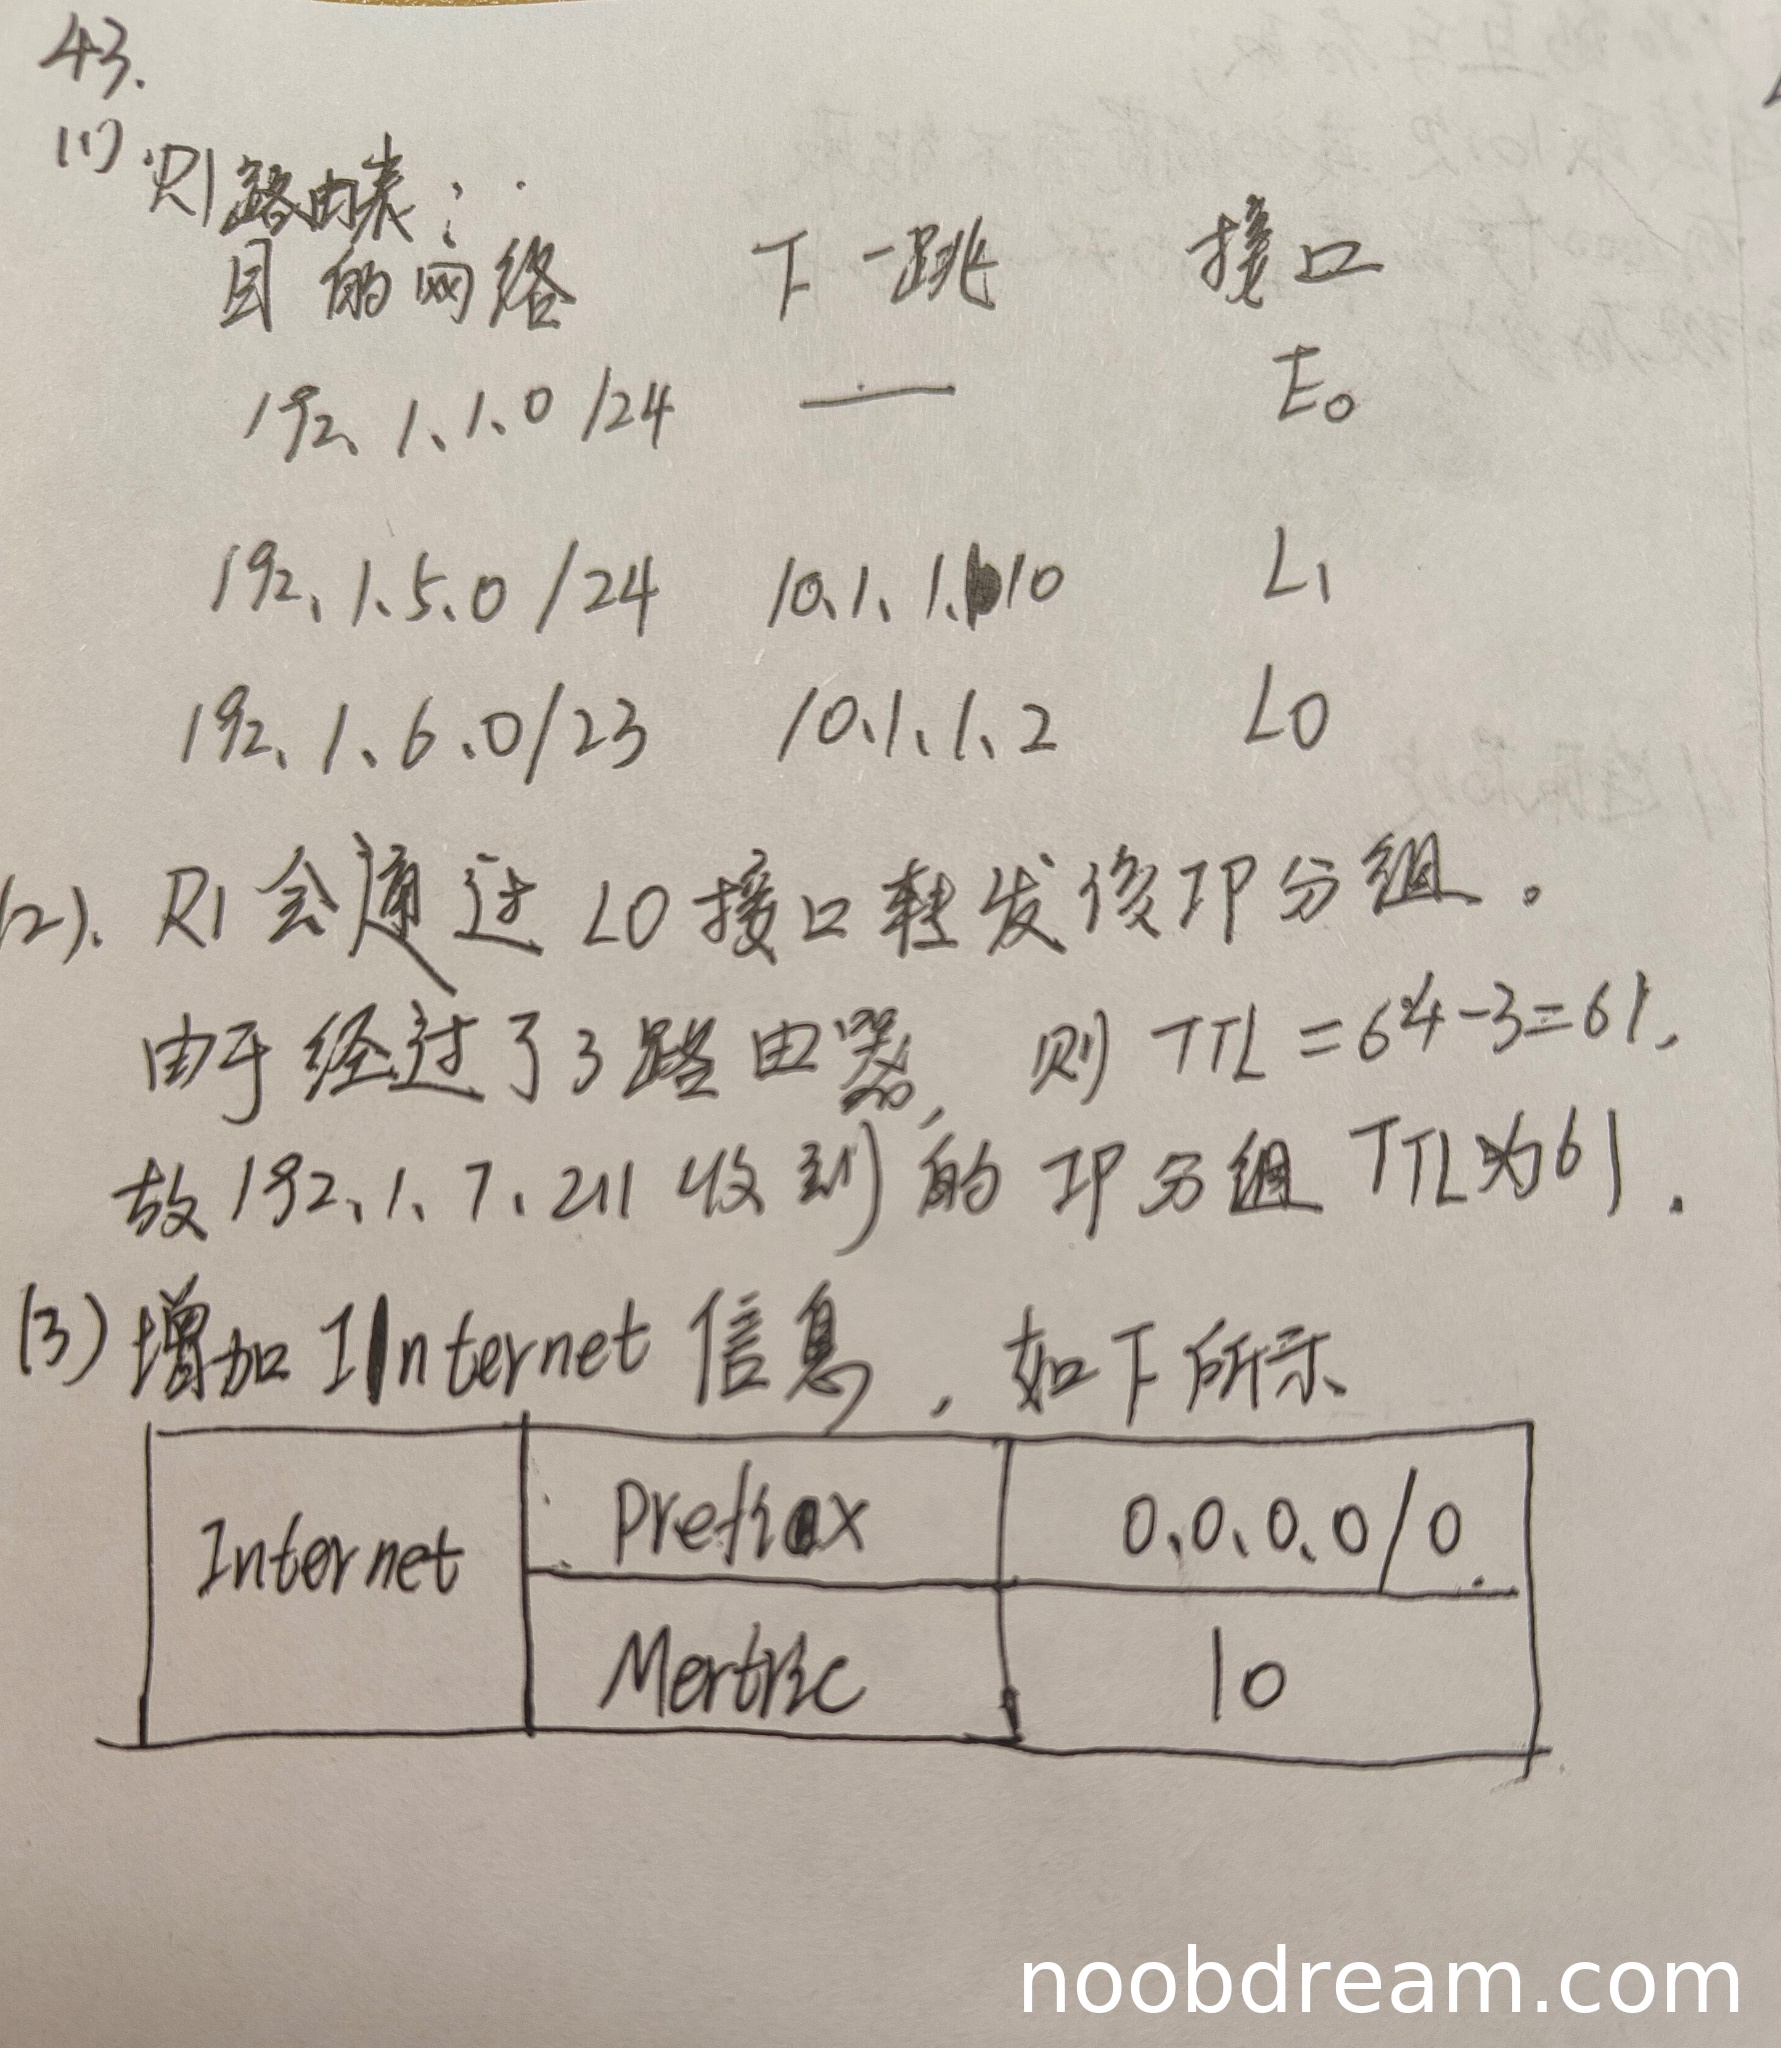 43.
(1) R1路由表：
目的网络 下一跳 接口
192.1.1.0/24 — E0
192.1.5.0/24 10.1.1.10 L1
192.1.6.0/23 10.1.1.2 L0
(2). R1会通过L0接口转发该IP分组。
由于经过了3路由器, 则TTL=64-3=61,
故192.1.7.211收到的IP分组TTL为61.
(3)增加Internet信息，如下所示
Internet Prefix 0.0.0.0/0
Mertric 10
noobdream.com